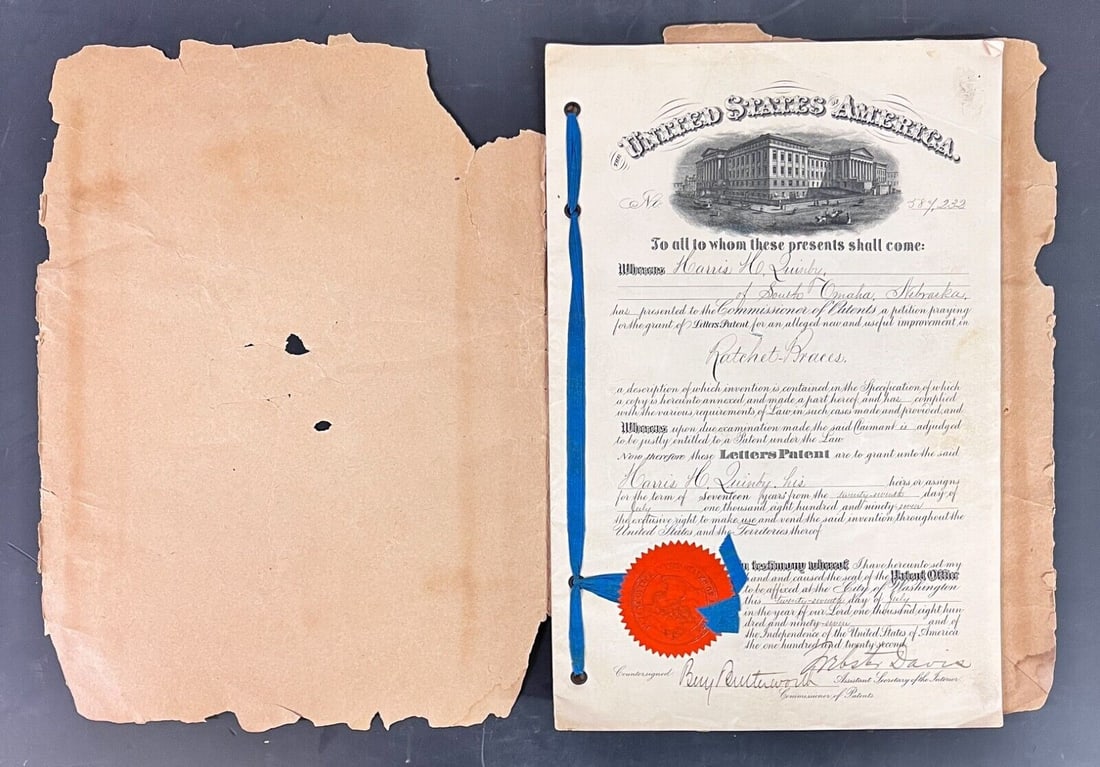 THE UNITED STATES OF AMERICA.
No 587,232
To all to whom these presents shall come:
Whereas Harris H. Quinby,
of South Omaha, Nebraska,
has presented to the Commissioner of Patents a petition praying
for the grant of Letters Patent for an alleged new and useful improvement in
Ratchet-Braces.
a description of which invention is contained in the Specification of which
a copy is hereunto annexed and made a part hereof and has complied
with the various requirements of Law in such cases made and provided, and
Whereas upon due examination made the said Claimant is adjudged
to be justly entitled to a Patent under the Law
Now therefore these Letters Patent are to grant unto the said
Harris H. Quinby, his heirs or assigns
for the term of seventeen years from the twenty-seventh day of
July one thousand eight hundred and ninety-seven
the exclusive right to make use and vend the said invention throughout the
United States, and the Territories thereof
n testimony whereof I have hereunto set my
hand and caused the seal of the Patent Office
to be affixed at the City of Washington
this twenty-seventh day of July
in the year of our Lord one thousand eight hun
dred and ninety-seven and of
the Independence of the United States of America
the one hundred and twenty-second.
Webster Davis
Countersigned Benj Butterworth Assistant Secretary of the Interior
Commissioner of Patents